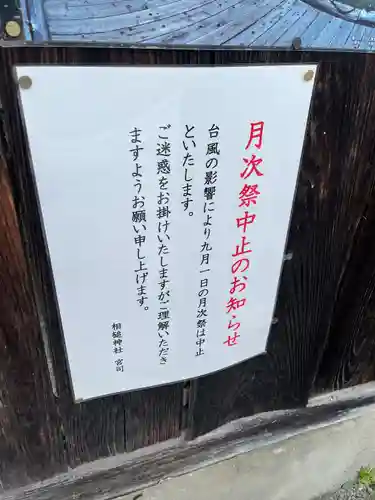 月次祭中止のお知らせ
台風の影響により九月一日の月次祭は中止
といたします。
ご迷惑をお掛けいたしますがご理解いただき
ますようお願い申し上げます。
相槌神社 宮司